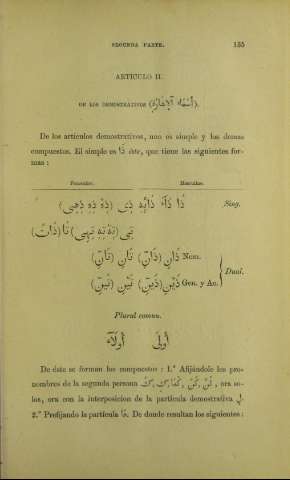 SEGUNDA PARTE. 135
ARTICULO II.
DE LOS DEMOSTRATIVOS (أَسْمَاء آلإِشَارَة).
De los artículos demostrativos, uno es simple y los demas
compuestos. El simple es ذَا éste, que tiene las siguientes for-
mas :
Femenino. Masculino.
ذَا ذَآءِ ذَائِهِ ذِى (ذِهْ ذِهِ ذِهِى) Sing.
تِى (تِهْ تِهِ تِهِى) تَا (ذَاتُ)
ذَانِ (ذَانِّ) تَانِ (تَانِّ) Nom.
Dual.
ذَيْنِ (ذَيْنِّ) تَيْنِ (تَيْنِّ) Gen. y Ac.
Plural comun.
أُولَى أُولَآءِ
De éste se forman los compuestos : 1.° Afijándole los pro-
nombres de la segunda persona كَ, كِ, كُمَا, كُمْ, كُنَّ, ora so-
los, ora con la interposicion de la partícula demostrativa لِ.
2.° Prefijando la partícula هَا. De donde resultan los siguientes :